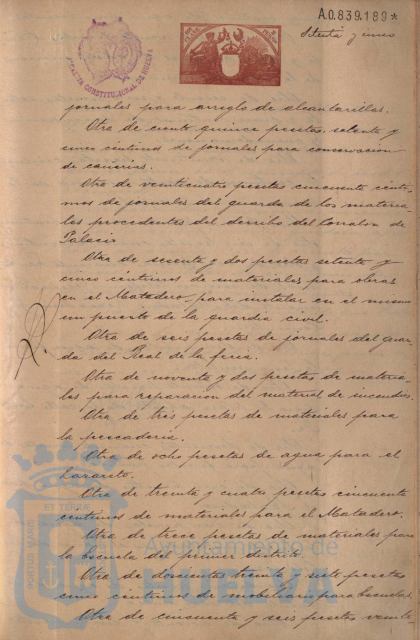 A.0.839.189*
Setenta y cinco
ALCALDIA CONSTITUCIONAL DE HUELVA
jornales para arreglo de alcantarillas.
Otra de ciento quince pesetas setenta y
cinco céntimos de jornales para conservacion
de cañerias.
Otra de veinticuatro pesetas cincuenta cénti-
mos de jornales del guarda de los materia
les procedentes del derribo del Corralon de
Palacio
Otra de sesenta y dos pesetas setenta y
cinco céntimos de materiales para obras
en el Matadero para instalar en el mismo
un puesto de la guardia civil.
Otra de seis pesetas de jornales del guar
da del Real de la feria.
Otra de noventa y dos pesetas de materia
les para reparacion del material de incendios.
Otra de tres pesetas de materiales para
la pescaderia.
Otra de ocho pesetas de agua para el
lazareto.
Otra de treinta y cuatro pesetas cincuenta
céntimos de materiales para el Matadero.
Otra de trece pesetas de materiales para
la escuela del primer distrito.
Otra de doscientas treinta y siete pesetas
cinco céntimos de mobiliario para escuelas.
Otra de cincuenta y seis pesetas veinte
Ayuntamiento de
HUELVA
PORTUS MARIS
ET TERRAE